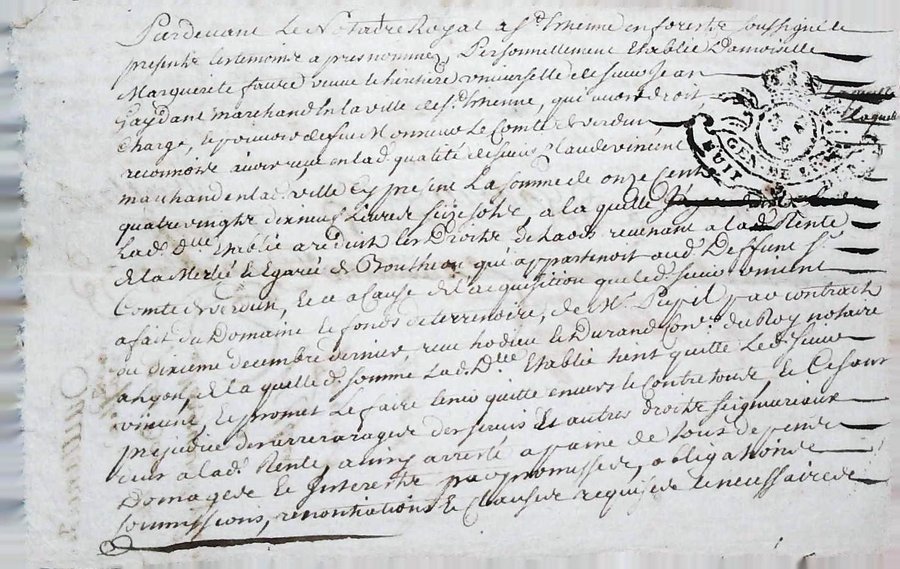 Pardevant Le Notaire Royal a St Etienne en forests soussigné Et
presents les temoins apres nommes, Personnellement Etablie Damoiselle
Marguerite faure veuve Et heritiere universelle de sieur Jean
Gaydan marchand En la ville de St Etienne, qui avoit droit,
Charge, Et pouvoir de feu Monsieur Le Comte de verdun, laquelle
reconnoit avoir reçu en lad. qualité de sieur Claude vincent
marchand en lad. ville Icy present La somme de onze cent
quatre vingt dix neuf Livres seize sols, a laquelle
Lad. Dlle Etablie a reduit les Droits de Laods revenant a la d. Rente
de la Merlée Et Egarée de Boutheon qui appartenoit aud. Deffunt Sr
Comte de verdun, Et ce a cause de l'acquisition que led. sieur vincent
a fait du Domaine Et fonds de terrenoire, de Mr Pupil par contract
du dixieme decembre dernier, reçu hodieu Et Durand Conrs du Roy notaire
a Lyon, de laquelle d. somme Lad. Dlle Etablie tient quitte Led. sieur
vincent, Et promet Le faire tenir quitte envers Et contre tous, Et Ce sans
prejudice des arrerages des servis Et autres droits seigneuriaux
deus a lad. Rente, ainsy arresté a paine de tous depends
Domages Et Interests par promesses, obligations
soumissions, renontiations Et Clauses requises Et necessaires
GEN DE LYON
HUIT